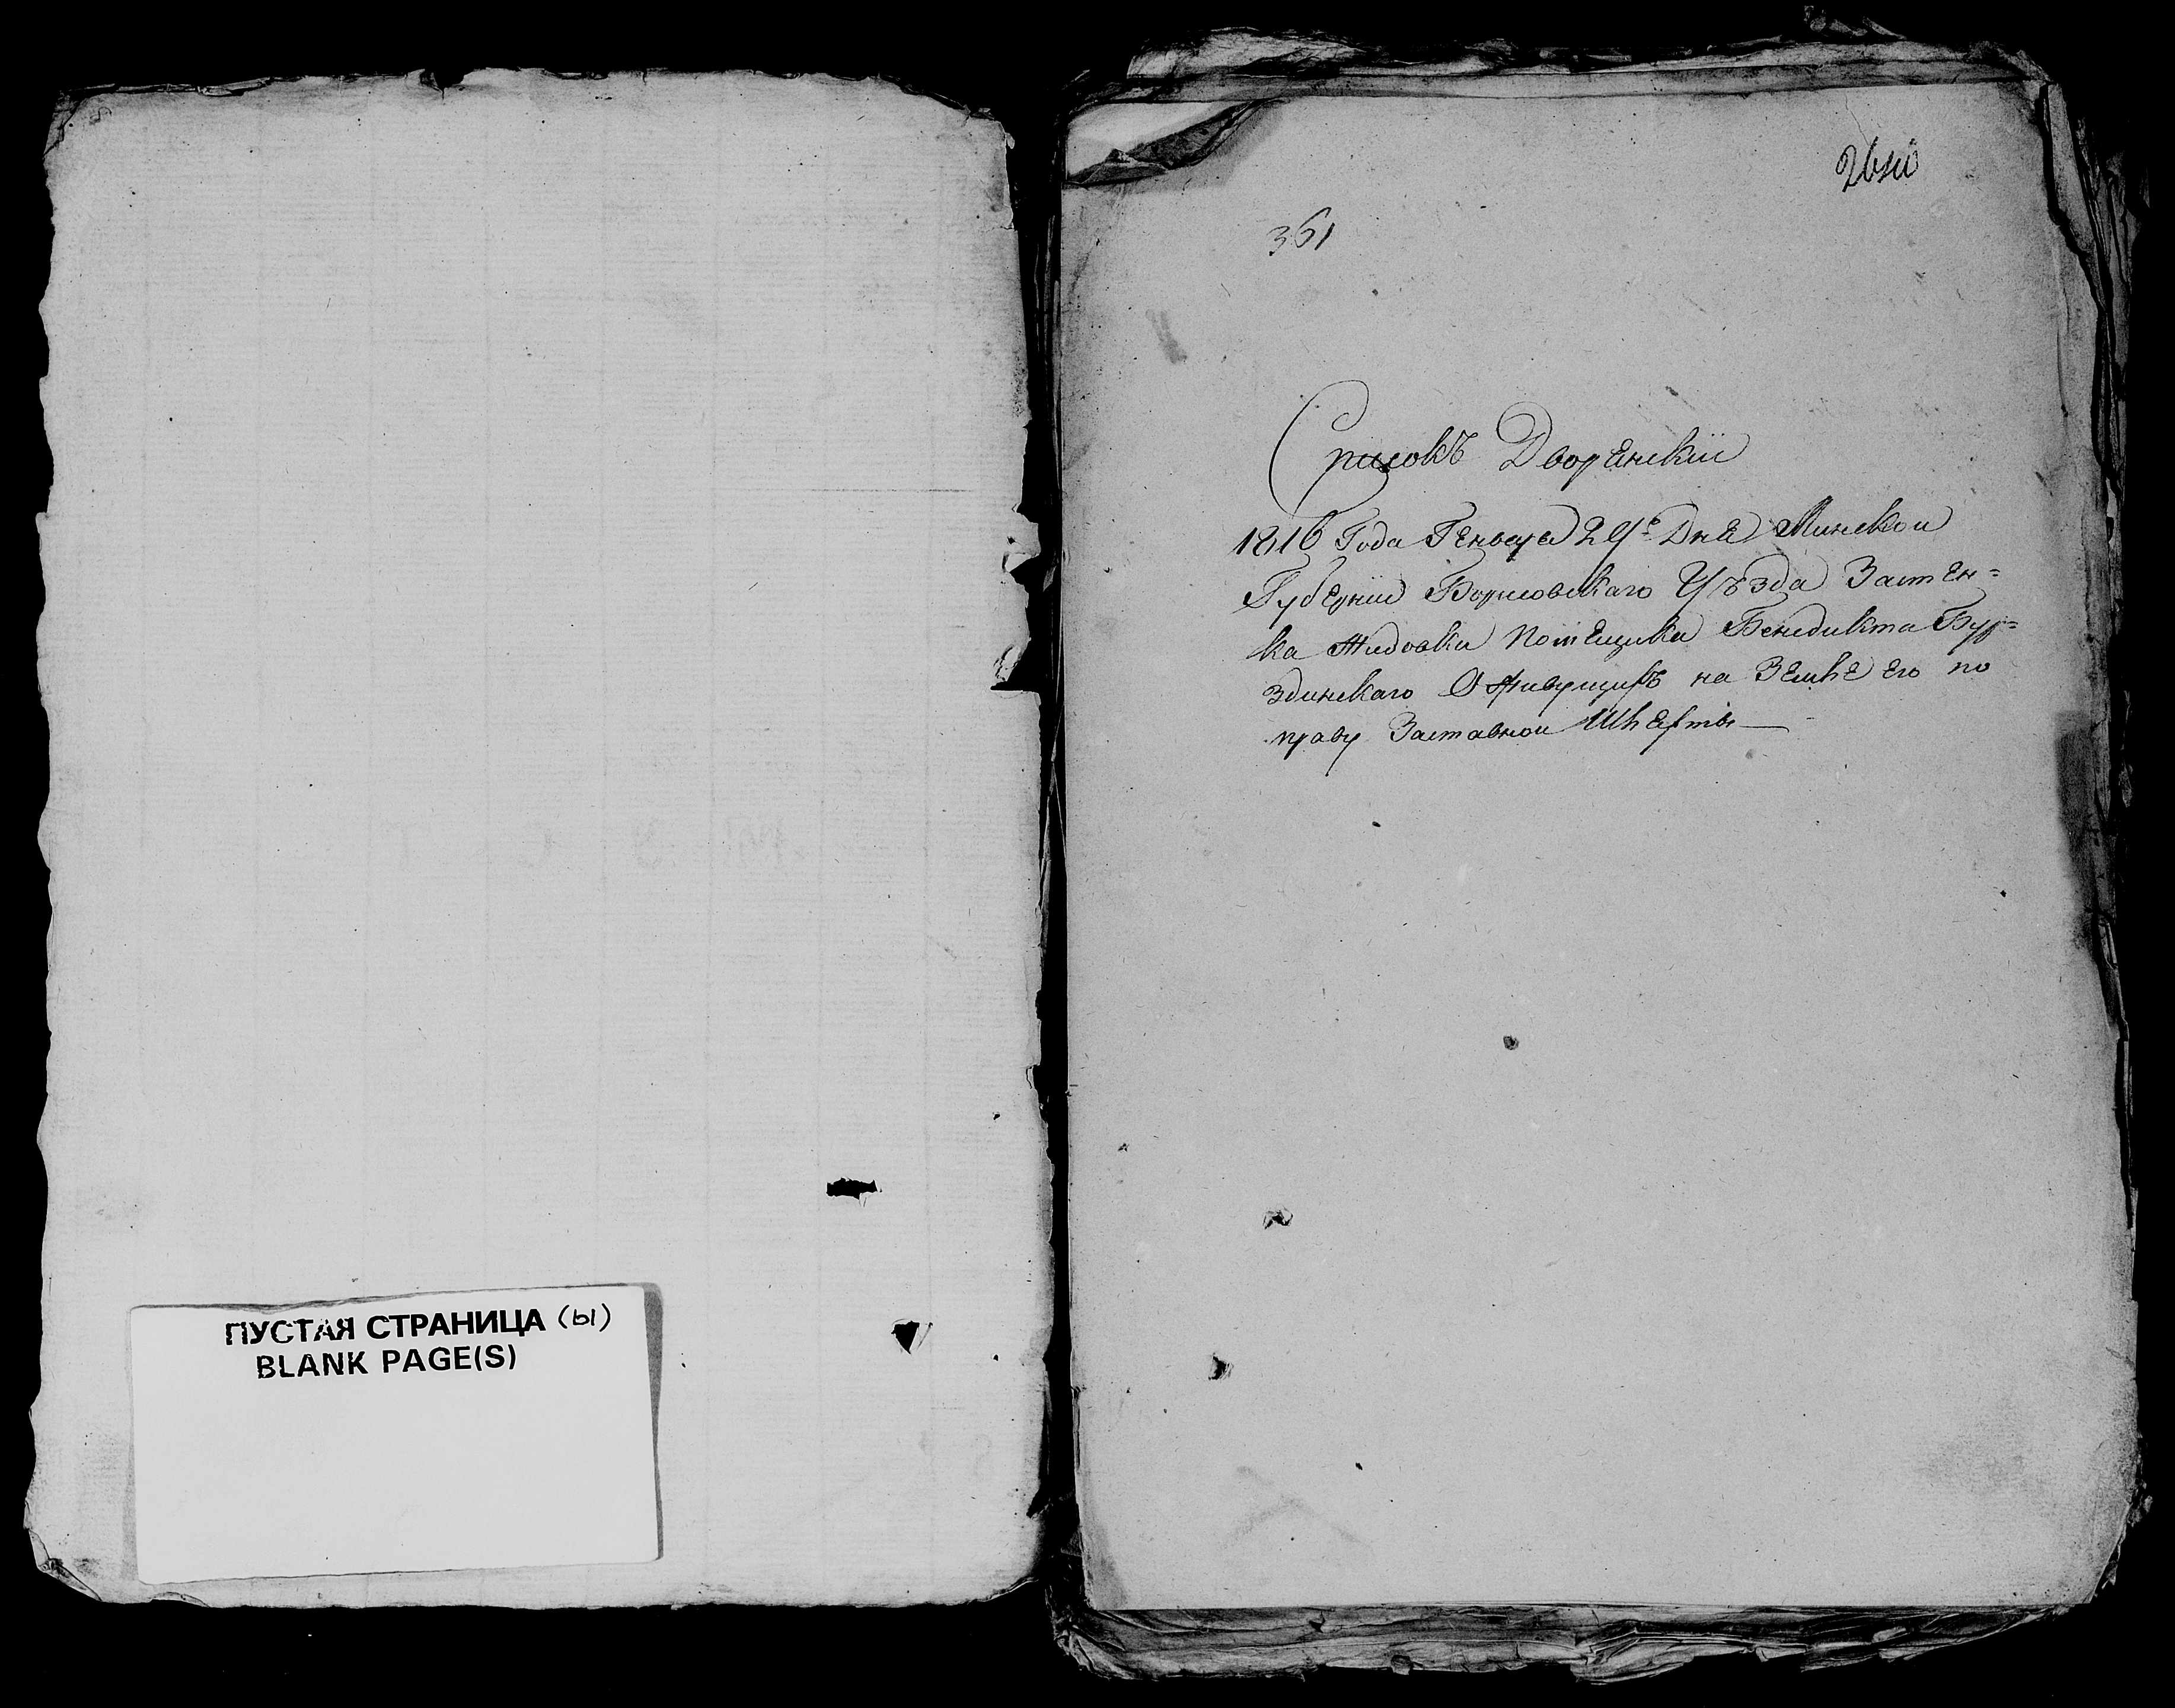 ПУСТАЯ СТРАНИЦА (ы)
BLANK PAGE(S)
361
Списокъ Дворянскій
1816 Года Генваря Дня Минской
Губерніи Борисовскаго Уѣзда Застен=
ка Жидовки Помещика Бенедикта Бур=
здинскаго О Живущихъ на Земле его по
праву Заставной Шляхты —